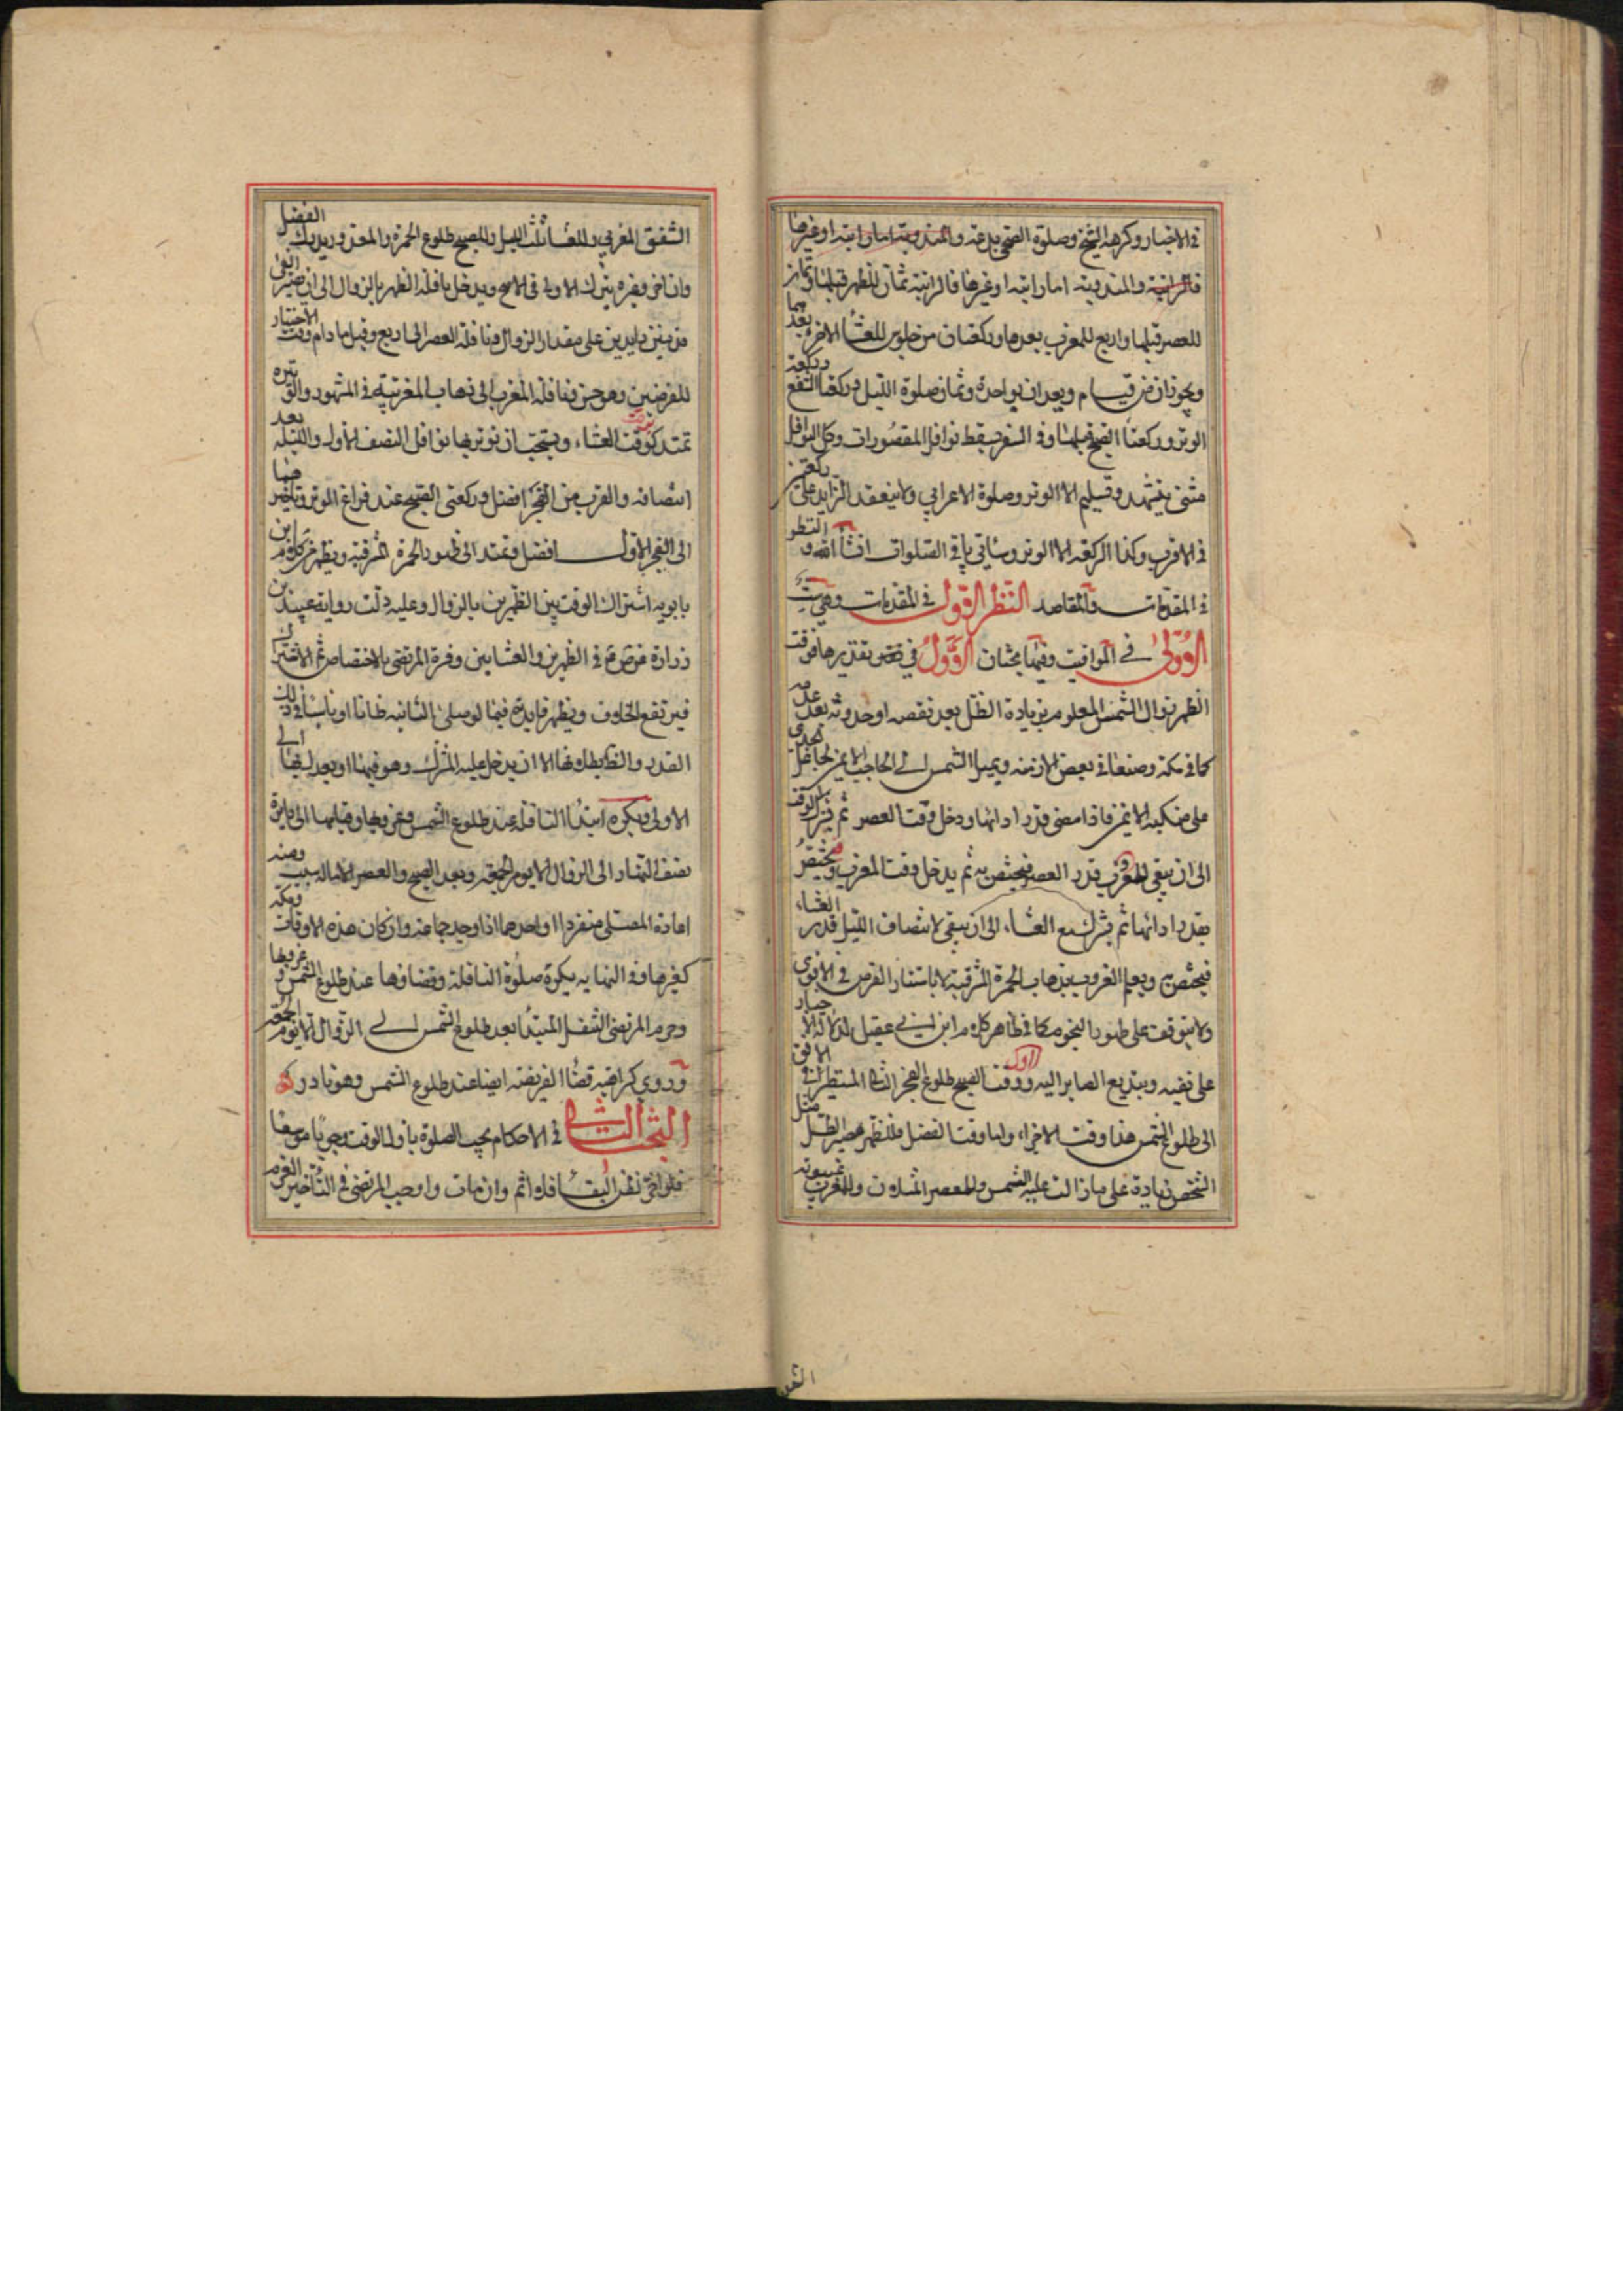 في الاخبار وكرهه الشيخ وصلوة الضحى بدعة والمندوبة اما راتبة او غيرها
فالراتبة والمندوبة اما راتبة او غيرها فالراتبة ثمان للظهر قبلها وثمان
للعصر قبلها واربع للمغرب بعدها وركعتان من جلوس للعشاء الاخرة بعدها
ويجوزان من قيام ويعدان بواحدة وثمان صلوة الليل وركعتا الشفع وركعة
الوتر وركعتا الصبح قبلها وفي السفر يسقط نوافل المقصورات وكل النوافل
مثنى بتشهد وتسليم الا الوتر وصلوة الاعرابي ولا ينعقد الزايد على ركعتين
في الاقرب وكذا الركعة الا الوتر وسياتي باقي الصلوات انشاء الله و النظر
في المقدمات والمقاصد النظر الاول في المقدمات وهي ست
الاولى في المواقيت وفيها بحثان الاول في تقديرها فوقت
الظهر زوال الشمس المعلوم بزيادة الظل بعد نقصه او حدوثه بعد عدمه
كما في مكة وصنعا في بعض الازمنة وبميل الشمس الى الحاجب الايمن
على منكبه الايمن فاذا مضى قدر ادائها ودخل وقت العصر ثم يشترك الوقت
الى ان يبقى للغروب قدر العصر فيختص به ثم يدخل وقت المغرب ويختص
بقدر ادائها ثم يشترك مع العشاء الى ان يبقى لانتصاف الليل قدر العشاء
فيختص به ويعلم الغروب بذهاب الحمرة المشرقية لا باستتار القرص في الاقوى
ولا يتوقف على ظهور النجوم كما في ظاهر كلام ابن ابي عقيل لدلالة الاخبار
على نفيه وبتبديع الصاير اليه واول وقت الصبح طلوع الفجر الثاني المستطير في الافق
الى طلوع الشمس هذا وقت الاجزاء واما وقت الفضل فللظهر مصير الظل مثل
الشخص زيادة على ما زالت عليه الشمس وللعصر المثلان وللمغرب غيبوبة
الشفق
الشفق المغربي وللعشاء ثلث الليل وللصبح طلوع الحمرة والمعذور يدرك الفضل
وان اخر وغيره يترك الاولى في الاصح ويدخل نافلة الظهر بالزوال الى ان يصير الفئ
قدمين زايدين على مقدار الزوال ونافلة العصر الى اربع وقيل ما دام وقت الاختيار
للفرضين وهو حسن ونافلة المغرب الى ذهاب المغربية في المشهور والوتيرة
تمتد كوقت العشاء ويستحب ان نوترها نوافل النصف الاول والليلة بعد
انتصافه والقرب من الفجر افضل وركعتى الصبح عند فراغ الوتر وتاخيرهما
الى الفجر الاول افضل وتمتد الى ظهور الحمرة المشرقية ويظهر من كلام ابن
بابويه اشتراك الوقت بين الظهرين بالزوال وعليه دلت رواية عبيد بن
زرارة عن ص ع في الظهرين والعشايين وفسره المرتضى بالاختصاص ثم الاشتراك
فيرتفع الخلاف ويظهر فايدته فيما لو صلى الثانية ظانا او ناسيا في ذلك
القدر والنظر بطلانها الا ان يدخل عليه المشترك وهو فيها او بعد لها الى
الاولى ويكره ابتداء النافلة عند طلوع الشمس وغروبها وقبلها الى دايرة
نصف النهار الى الزوال الا يوم الجمعة وبعد الصبح والعصر الا ماله سبب ومنه
اعادة المصلى منفردا او احدهما اذا وجد جماعة وان كان هذه الاوقات ومكة
كغيرها وفي النهاية يكره صلوة النافلة وقضاؤها عند طلوع الشمس وغروبها
وحرم المرتضى التنفل المبتدا بعد طلوع الشمس الى الزوال الا يوم الجمعة
وروي كراهية قضاء الفريضة ايضا عند طلوع الشمس وهو نادر
البحث الثاني في الاحكام يجب الصلوة باول الوقت وجوبا موسعا
فلو اخر لظن البقاء فلا اثم وان مات واوجب المرتضى في التاخير العزم